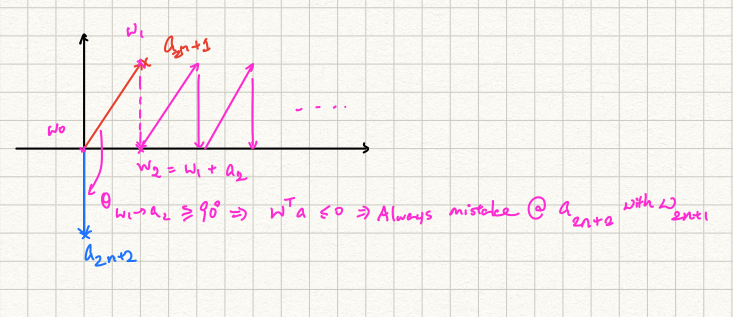 w₁
a₂ₙ₊₁
w₀
- - . .
w₂ = w₁ + a₂
θ w₁→a₂ ≥ 90° ⇒ wᵀa ≤ 0 ⇒ Always mistake @ a₂ₙ₊₂ with w₂ₙ₊₁
a₂ₙ₊₂